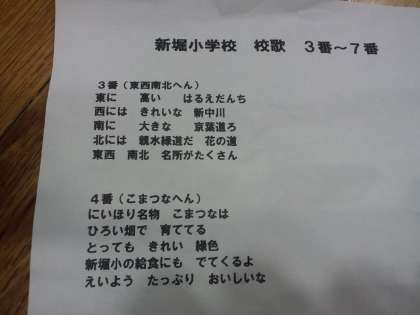 新堀小学校　校歌　３番～７番
３番（東西南北へん）
東に　高い　はるえだんち
西には　きれいな　新中川
南に　大きな　京葉道ろ
北には　親水緑道だ　花の道
東西　南北　名所がたくさん
４番（こまつなへん）
にいほり名物　こまつなは
ひろい畑で　育ててる
とっても　きれい　緑色
新堀小の給食にも　でてくるよ
えいよう　たっぷり　おいしいな